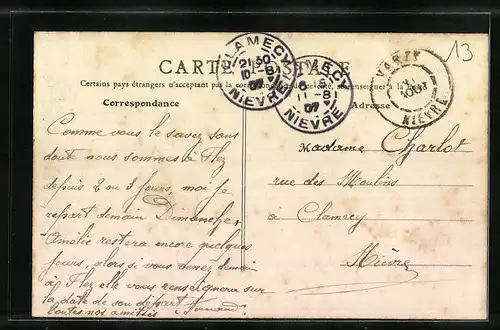 13
CARTE POSTALE
Certains pays étrangers n'acceptant pas la correspondance se renseigner à la
Correspondance
Adresse
CLAMECY
NIEVRE
21 30
10 -8
07
CLAMECY
NIEVRE
11 -8
07
VARZY
NIEVRE
Comme vous le savez sans
doute nous sommes à Flez
depuis 2 ou 3 jours, moi je
repart demain Dimanche,
Amélie restera encore quelques
jours, alors si vous venez demain
à Flez elle vous renseignera sur
la date de son départ
toutes nos amitiés
Madame Charlot
rue des Moulins
à Clamecy
Nièvre